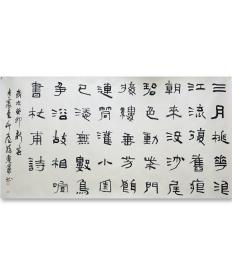 三月桃花浪
江流復舊痕
朝來沒沙尾
碧色動柴門
接縷垂芳餌
連筒灌小園
已添無數鳥
爭浴故相喧
書杜甫詩
歲次癸卯新春